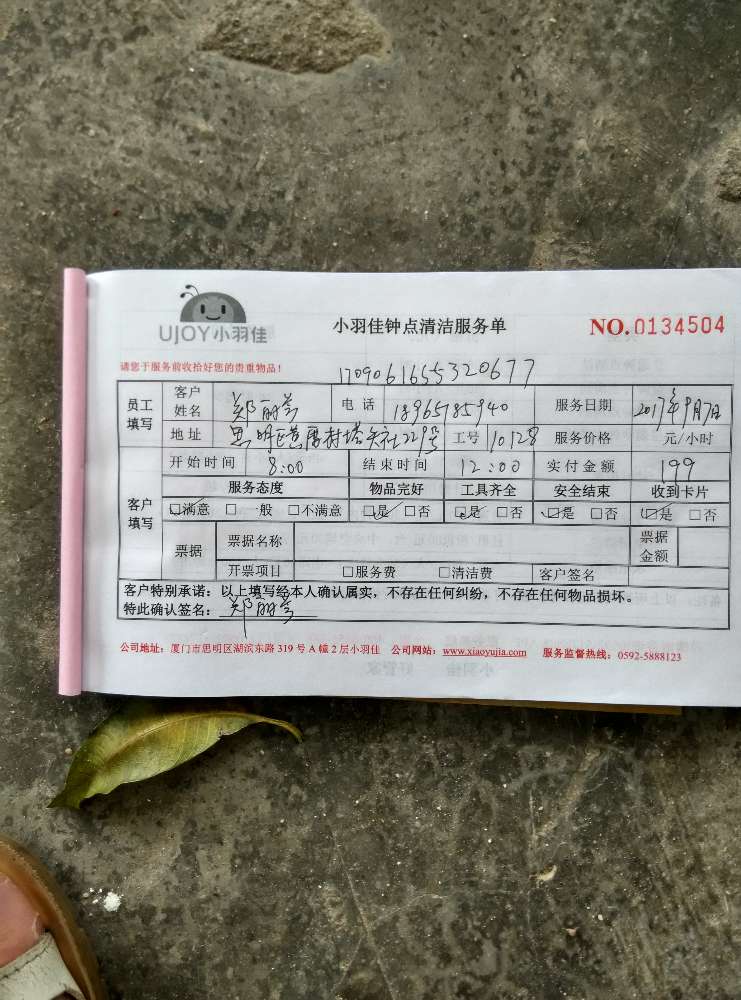 UJOY小羽佳
小羽佳钟点清洁服务单
NO.0134504
请您于服务前收拾好您的贵重物品！
1709061655320677
员工填写 客户姓名 郑丽 电话 18965185940 服务日期 2017年9月7日
地址 思明区黄厝村塔头社229号 工号 10128 服务价格 元/小时
客户填写 开始时间 8:00 结束时间 12:00 实付金额 199
服务态度 物品完好 工具齐全 安全结束 收到卡片
☑满意 □一般 □不满意 ☑是 □否 ☑是 □否 ☑是 □否 ☑是 □否
票据 票据名称 票据金额
开票项目 □服务费 □清洁费 客户签名
客户特别承诺：以上填写经本人确认属实，不存在任何纠纷，不存在任何物品损坏。
特此确认签名：郑丽
公司地址：厦门市思明区湖滨东路 319 号 A 幢 2 层小羽佳 公司网站：www.xiaoyujia.com 服务监督热线：0592-5888123